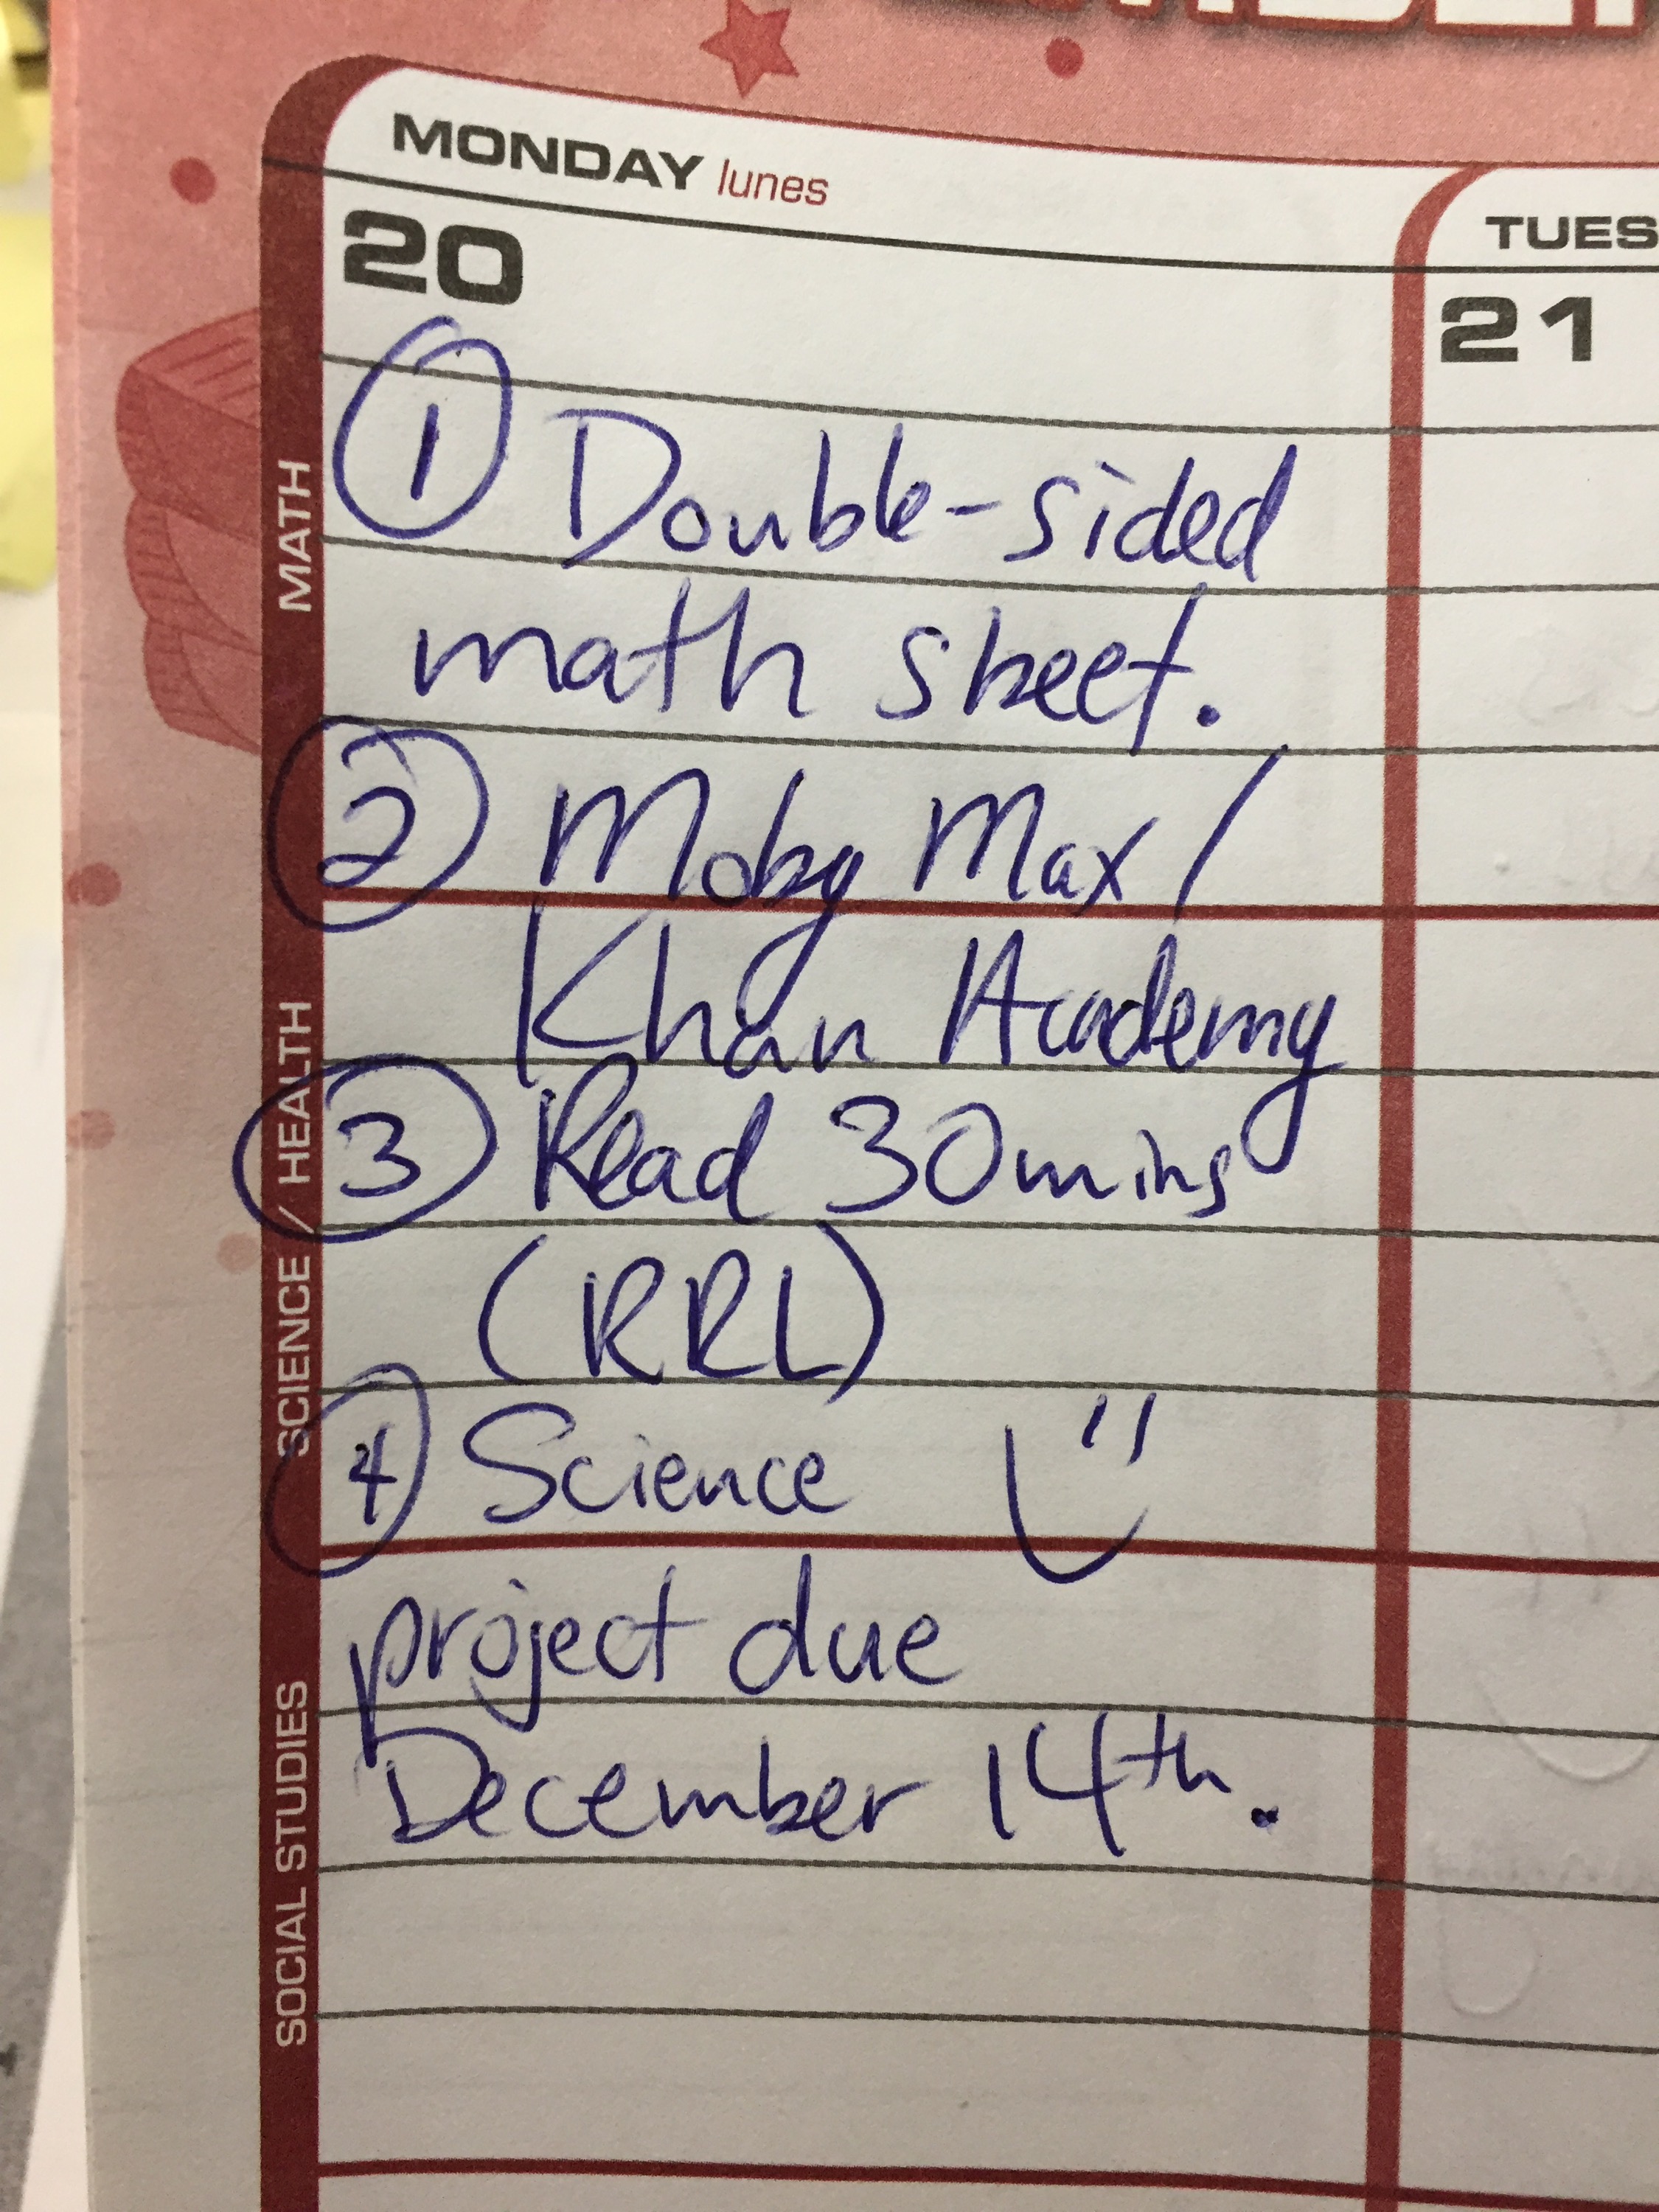 MONDAY lunes
TUES
20
21
MATH
① Double-sided
math sheet.
② Moby Max /
SCIENCE / HEALTH
Khan Academy
③ Read 30mins
(RRL)
④ Science
SOCIAL STUDIES
project due
December 14th.